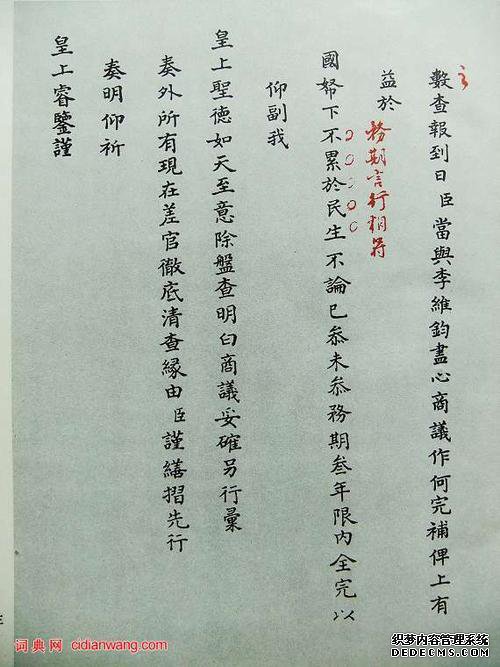 數查報到日臣當與李維鈞盡心商議作何完補俾上有
益於
務期言行相符
國帑下不累於民生不論已叅未叅務期叁年限內全完以
仰副我
皇上聖德如天至意除盤查明白商議妥確另行彙
奏外所有現在差官徹底清查緣由臣謹繕摺先行
奏明仰祈
皇上睿鑒謹
三
詞典网 cidianwang.com
织梦内容管理系统
DEDECMS.COM